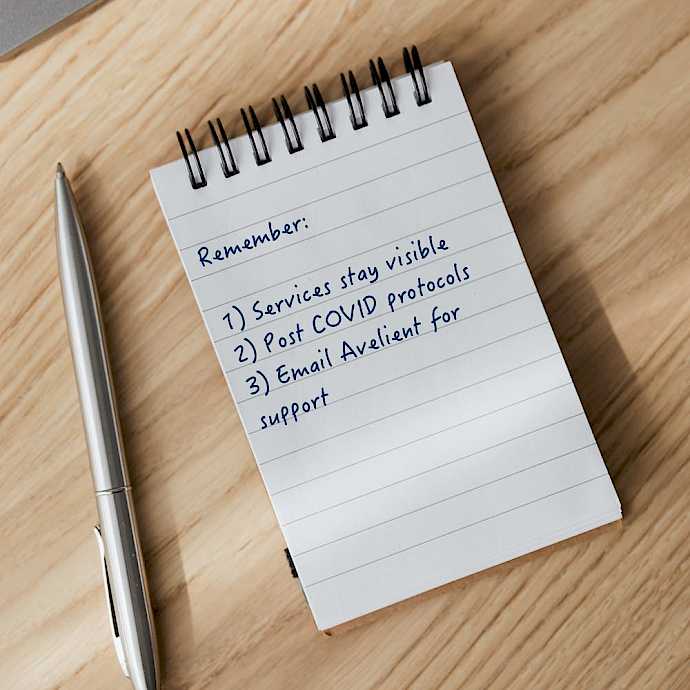 Remember:
1) Services stay visible
2) Post COVID protocols
3) Email Avelient for
support